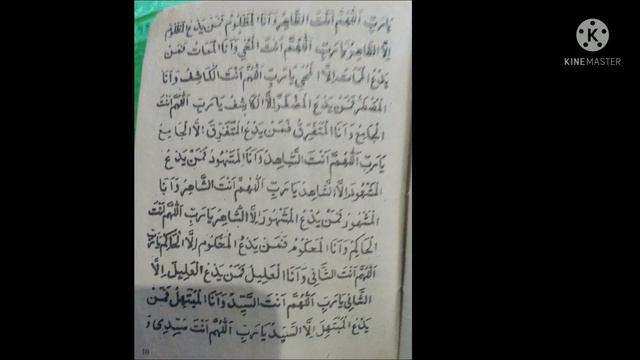 يَارَبِّ اَللّٰهُمَّ اَنْتَ الظَّاهِرُ وَاَنَا الْمَظْلُوْمُ فَمَنْ يَدْعُ الْمَظْلُوْمَ
اِلَّا الظَّاهِرُ يَارَبِّ اَللّٰهُمَّ اَنْتَ الْمُحْيِ وَاَنَا الْمَمَاتُ فَمَنْ
يَدْعُ الْمَمَاتَ اِلَّا الْمُحْيِ يَارَبِّ اَللّٰهُمَّ اَنْتَ الْكَاشِفُ وَاَنَا
الْمُضْطَرُّ فَمَنْ يَدْعُ الْمُضْطَرَّ اِلَّا الْكَاشِفُ يَارَبِّ اَللّٰهُمَّ اَنْتَ
الْجَامِعُ وَاَنَا الْمُتَفَرِّقُ فَمَنْ يَدْعُ الْمُتَفَرِّقَ اِلَّا الْجَامِعُ
يَارَبِّ اَللّٰهُمَّ اَنْتَ الشَّاهِدُ وَاَنَا الْمَشْهُوْدُ فَمَنْ يَدْعُ
الْمَشْهُوْدَ اِلَّا الشَّاهِدُ يَارَبِّ اَللّٰهُمَّ اَنْتَ الشَّاهِرُ وَاَنَا
الْمَشْهُوْرُ فَمَنْ يَدْعُ الْمَشْهُوْرَ اِلَّا الشَّاهِرُ يَارَبِّ اَللّٰهُمَّ اَنْتَ
الْحَاكِمُ وَاَنَا الْمَعْكُوْمُ فَمَنْ يَدْعُ الْمَحْكُوْمَ اِلَّا الْحَاكِمُ يَارَبِّ
اَللّٰهُمَّ اَنْتَ الشَّافِيْ وَاَنَا الْعَلِيْلُ فَمَنْ يَدْعُ الْعَلِيْلَ اِلَّا
الشَّافِيْ يَارَبِّ اَللّٰهُمَّ اَنْتَ السَّيِّدُ وَاَنَا الْمُبْتَهِلُ فَمَنْ
يَدْعُ الْمُبْتَهِلَ اِلَّا السَّيِّدُ يَارَبِّ اَللّٰهُمَّ اَنْتَ سَيِّدِيْ وَ
10
KINEMASTER